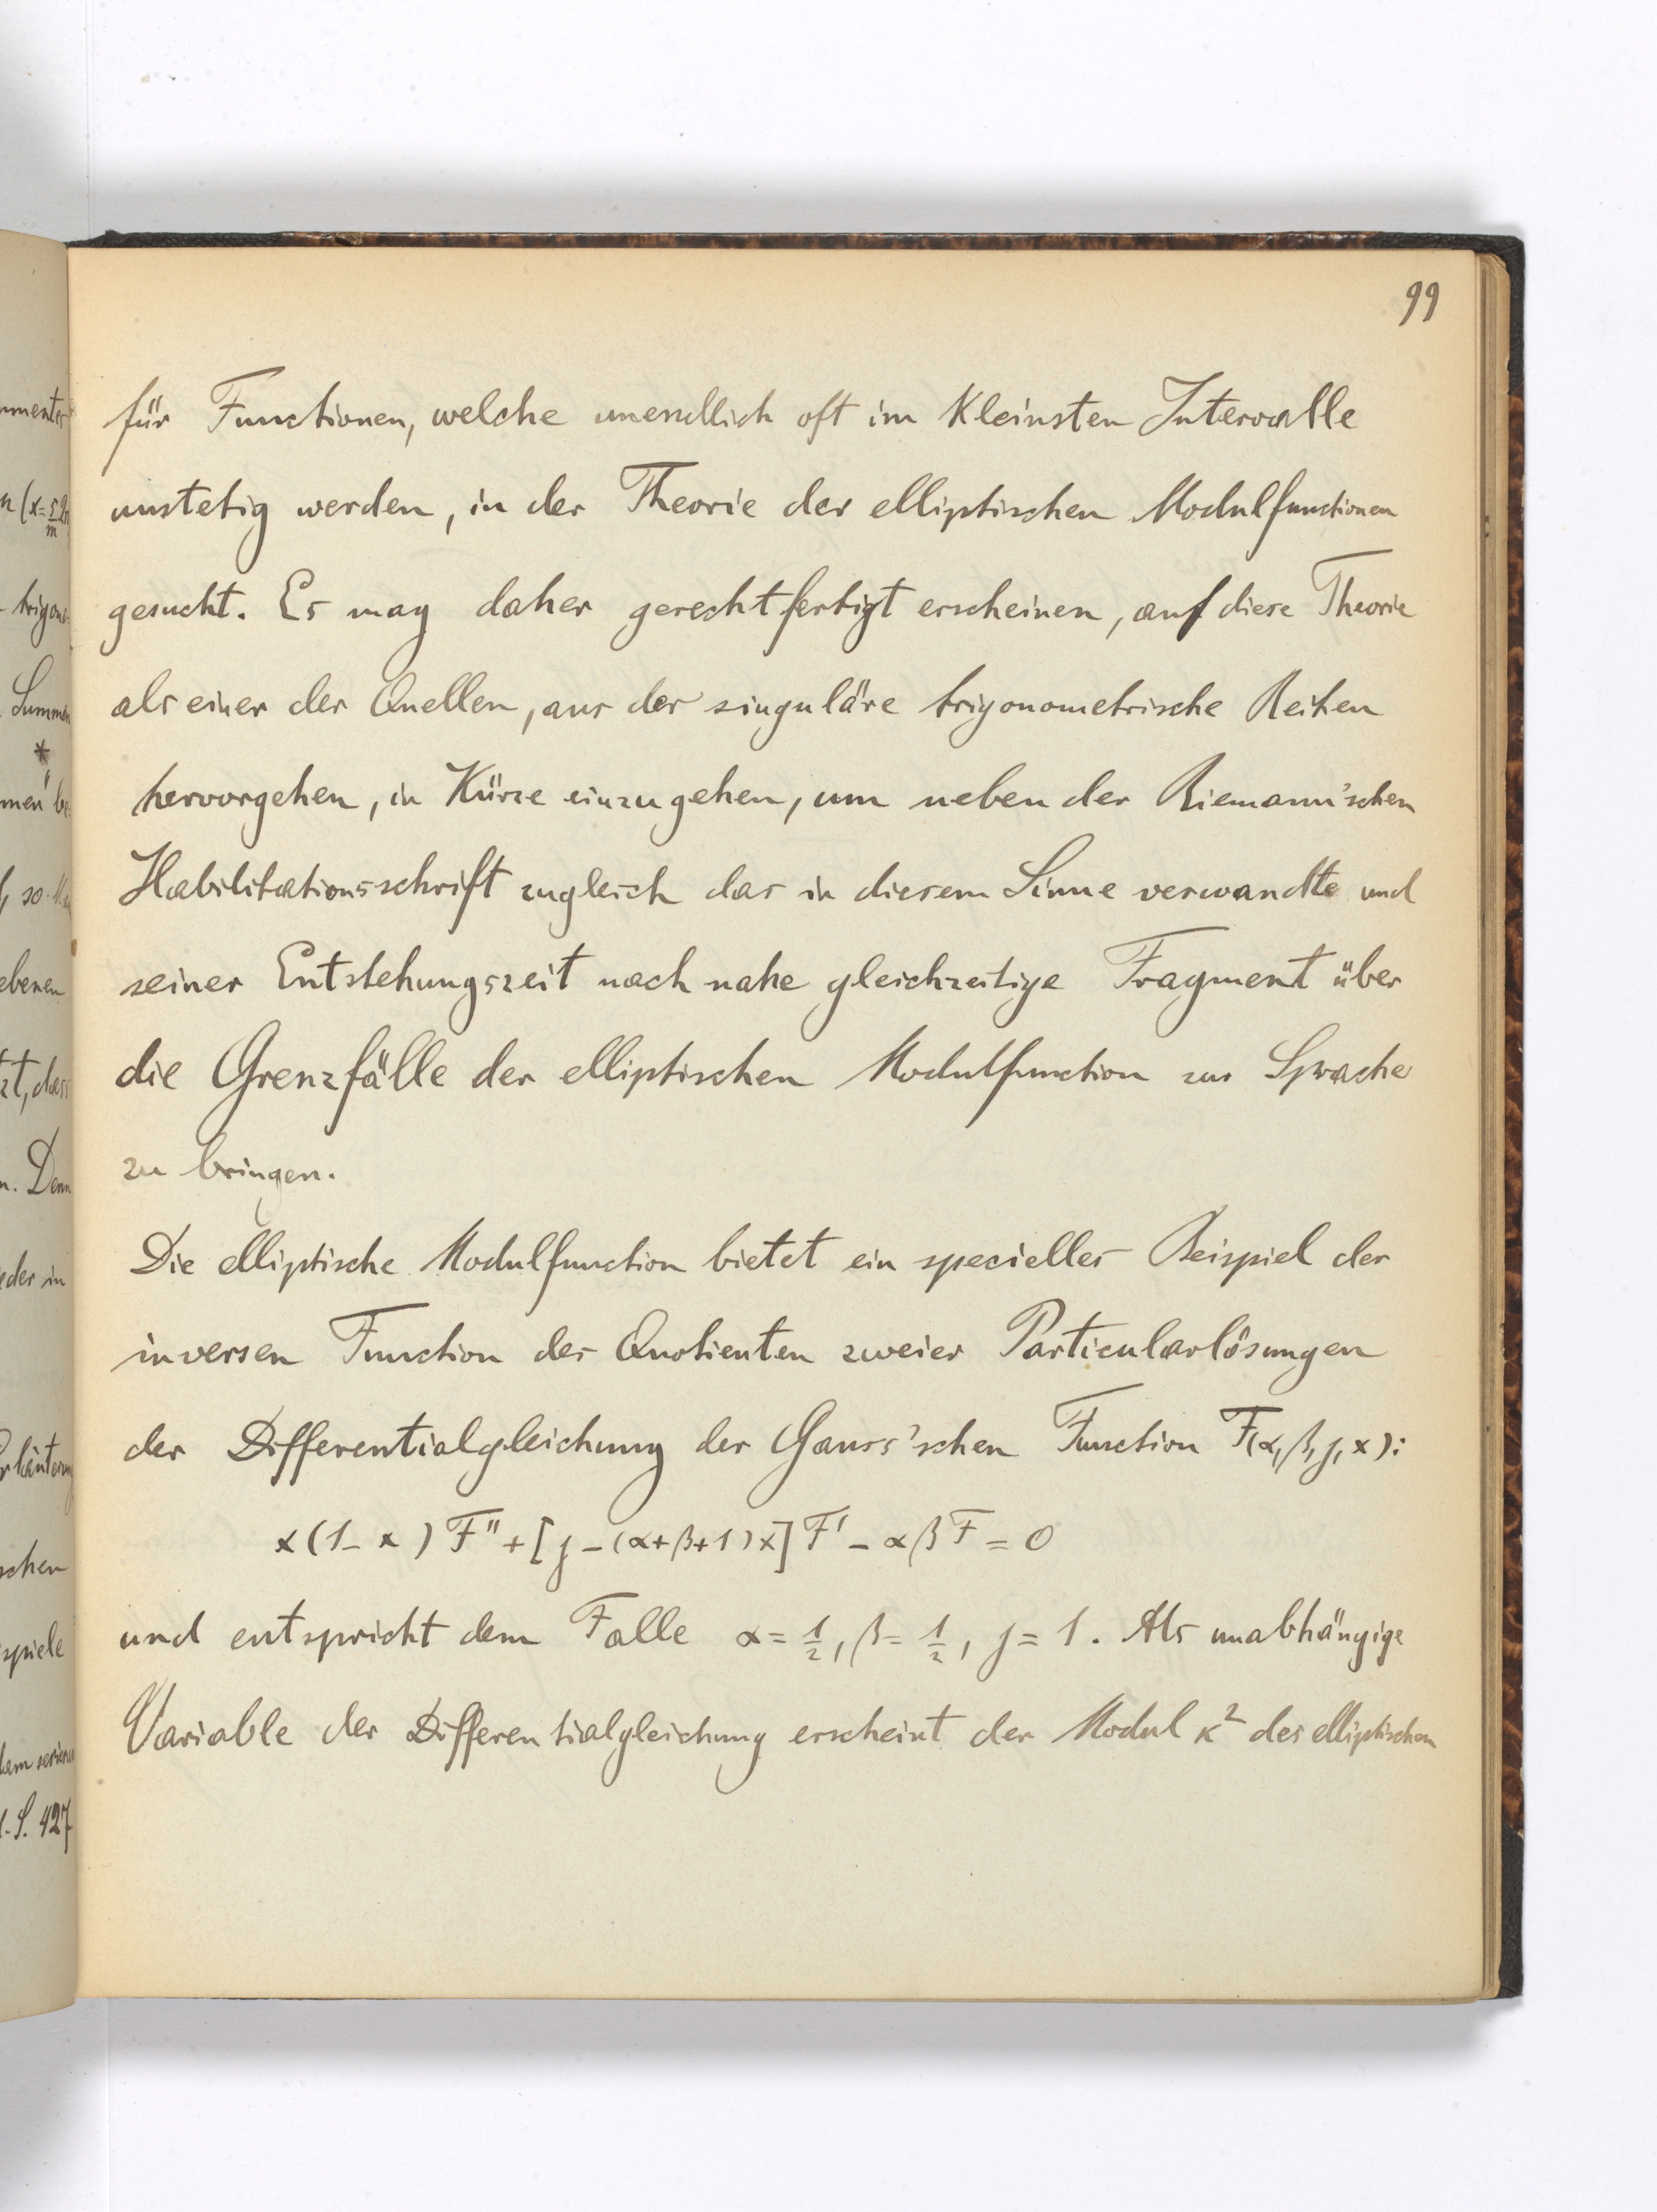 99
für Functionen, welche unendlich oft im Kleinsten Intervalle
unstetig werden, in der Theorie der elliptischen Modulfunctionen
gesucht. Es mag daher gerechtfertigt erscheinen, auf diese Theorie
als einer der Quellen, aus der singuläre trigonometrische Reihen
hervorgehen, in Kürze einzugehen, um neben der Riemann'schen
Habilitationsschrift zugleich das in diesem Sinne verwandte und
seiner Entstehungszeit nach nahe gleichzeitige Fragment über
die Grenzfälle der elliptischen Modulfunction zur Sprache
zu bringen.
Die elliptische Modulfunction bietet ein specielles Beispiel der
inversen Function des Quotienten zweier Particularlösungen
der Differentialgleichung der Gauss'schen Function F(α, β, γ, x):
x(1-x)F''+[γ-(α+β+1)x]F'-αβF=0
und entspricht dem Falle α=1/2, β=1/2, γ=1. Als unabhängige
Variable der Differentialgleichung erscheint der Modul κ² des elliptischen